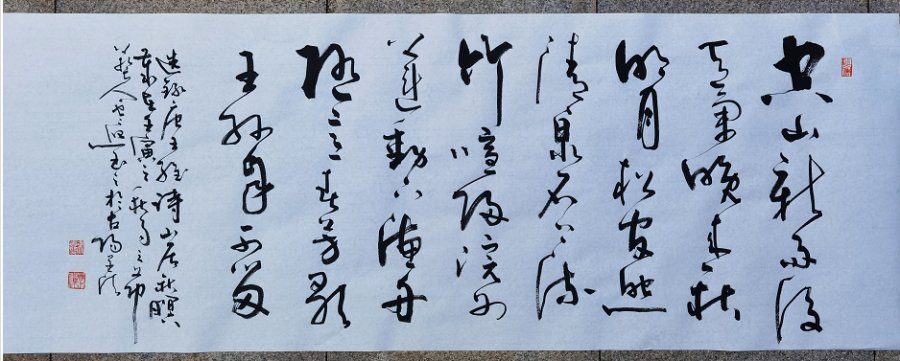 空山新雨後
天氣晚來秋
明月松間照
清泉石上流
竹喧歸浣女
蓮動下漁舟
隨意春芳歇
王孫自可留
選錄唐王維詩山居秋暝
歲在壬寅之秋月之
人書於古陽